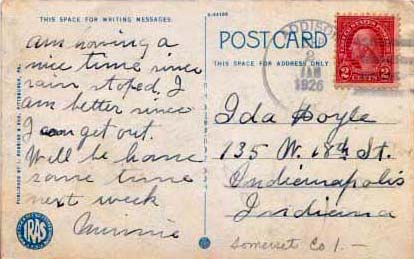 THIS SPACE FOR WRITING MESSAGES.
am having a
nice time since
rain stoped, I
am better since
I can get out.
Will be home
some time
next week
Minnie
IRAS
POST CARD
THIS SPACE FOR ADDRESS ONLY
ADDISO
2
JAN
1926
2 CENTS 2
Ida Doyle
135 W. 18th St.
Indianapolis
Indiana
Somerset Co 1.—